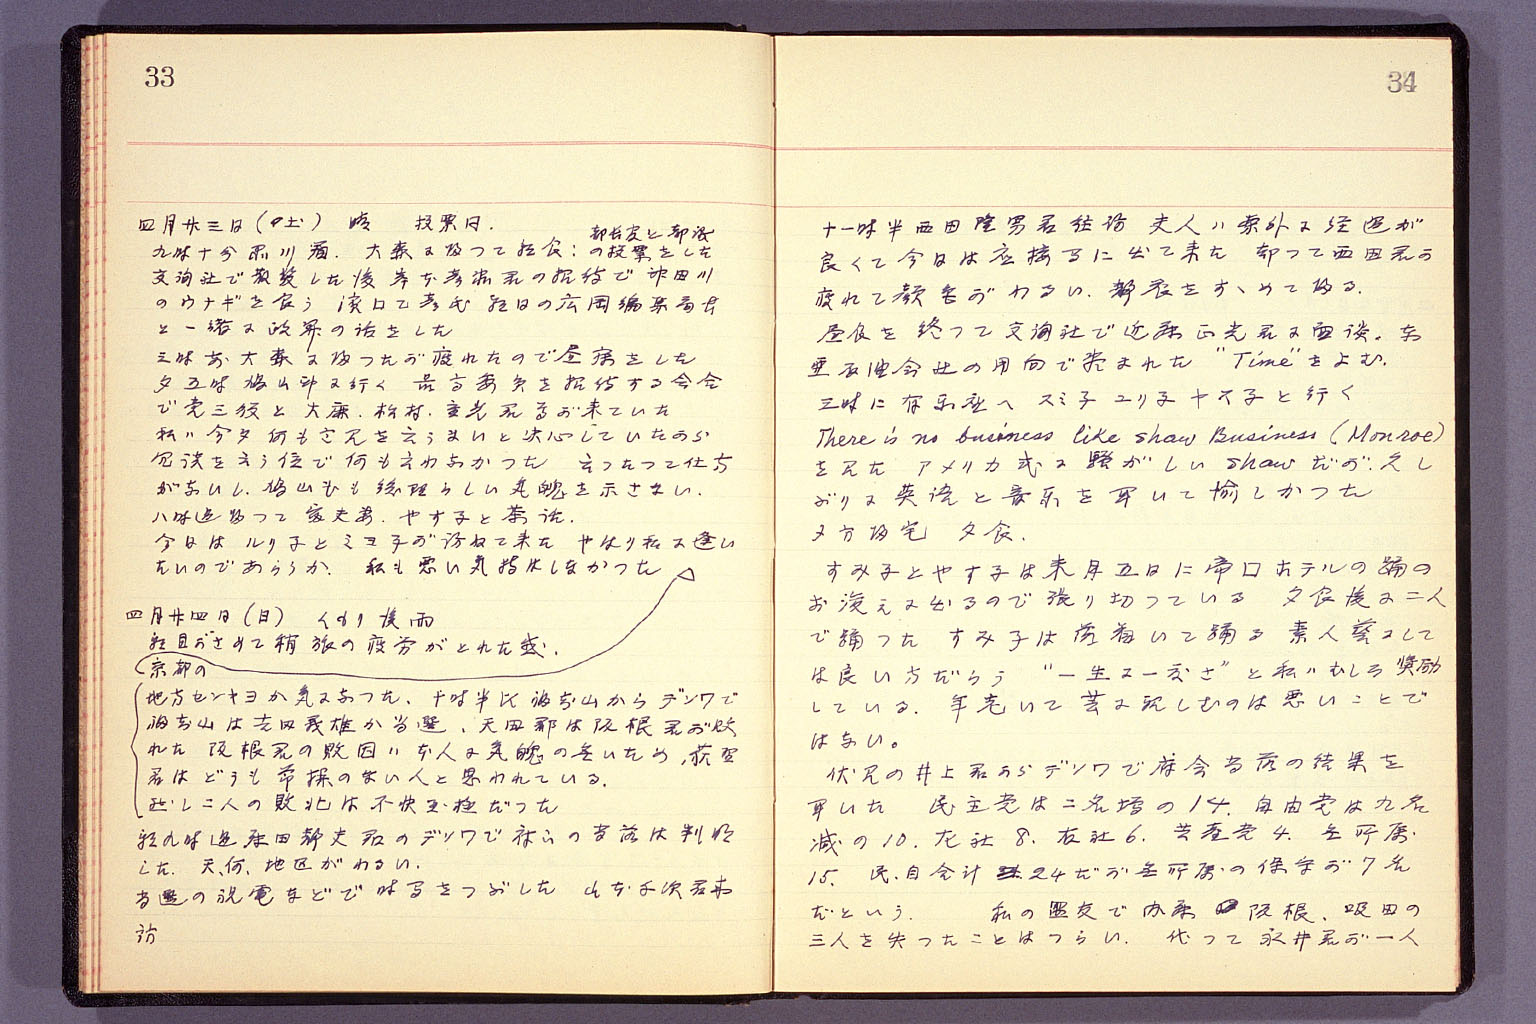 33
四月廿三日(土) 晴 投票日.
都長官と都議
九時十分品川着. 大森に帰って朝食: の投票をした
交詢社で散髪した後 の招待で 神田川
のウナギを食う 朝日の広岡編集局長
と一緒に政界の話をした
三時前大森に帰ったが疲れたので昼寝をした
夕五時鳩山邸に行く 最高委員を招待する会合
で党三役と大麻. 松村. 重光君等が来ていた
私ハ今夕何も意見を言うまいと決心していたから
冗談を言う位で何も言わなかった 言ったって仕方
がないし. 鳩山氏も総理らしい気魄を示さない.
八時過帰って 夫妻. やす子と茶話.
今日は ルリ子とミヨ子が訪ねて来た やはり私に逢い
たいのであろうか. 私も悪い気持はしなかった
四月廿四日(日) くもり後雨
朝目がさめて稍旅の疲労がとれた感.
京都の
地方センキョが気になった. 十時半比福知山からデンワで
福知山は 義雄が当選, 天田郡は阪根君が敗
れた 阪根君の敗因ハ本人に気魄の無いため,
君はどうも節操のない人と思われている.
然し二人の敗北は不快至極だった
朝九時過 田 夫君のデンワで 等の当落は判明
した. 天、何、地区がわるい.
当選の祝電などで時間をつぶした 山本 次君来
訪
34
十一時半西田隆男君往訪 夫人ハ案外に経過が
良くて今日は応接間に出て来た 却って西田君が
疲れて顔色がわるい. 静養をすゝめて帰る.
昼食を終って交詢社で近藤 君に面談. 東
亜 会社の用向で 頼まれた "Time"をよむ.
三時に有楽座へ スミ子 ユリ子 ヤス子と行く
There is no business like show Business (Monroe)
を見た アメリカ式に騒がしい show だが. 久し
ぶりに英語と音楽を耳いて愉しかった
夕方帰宅 夕食.
すみ子とやす子は来月五日に帝国ホテルの踊の
お浚えに出るので張り切っている 夕食後に二人
で踊った すみ子は落着いて踊る 素人藝としては
は良い方だろう "一生に一度さ"と私ハむしろ奨励
している. 年老いて芸に親しむのは悪いことで
はない。
伏見の井上君からデンワで府会当落の結果を
耳いた 民主党は二名増の14. 自由党は九名
減の10. 左社8. 右社6. 共産党4. 無所属
15. 民、自合計24だが無所属の保守が7名
だという. 私の盟友で 阪根、吸田の
三人を失ったことはつらい. 代って永井君が一人